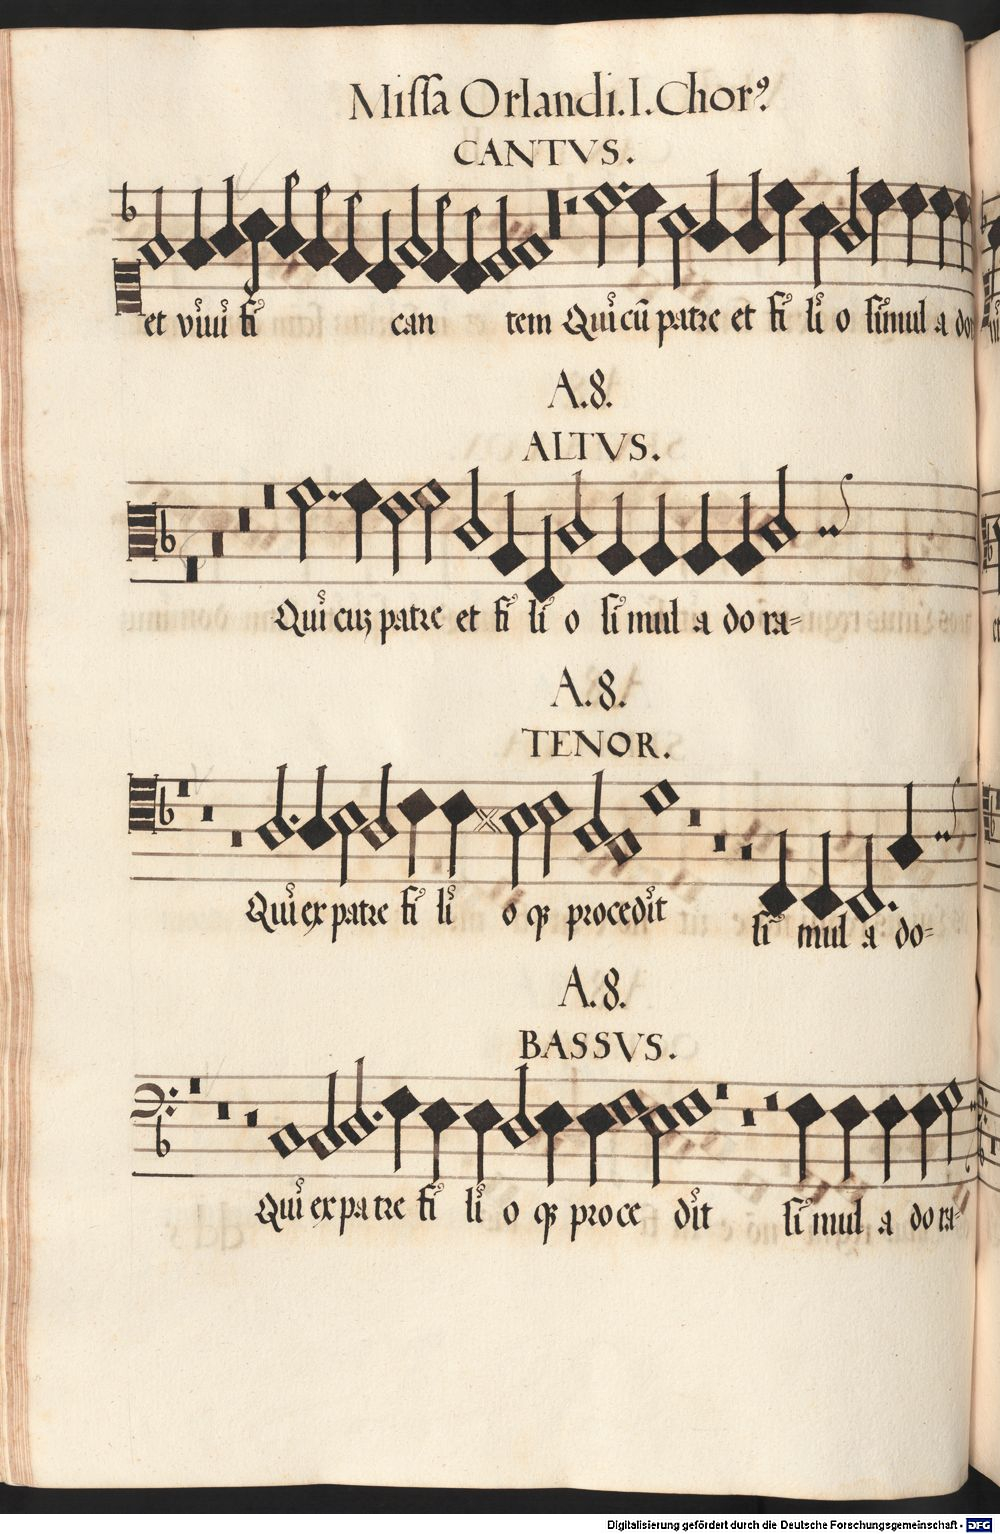 Missa Orlandi. I. Chorꝰ.
CANTVS.
et viui fi can tem Qui cũ patre et fi li o simul a do
A. 8.
ALTVS.
Qui cuz patre et fi li o si mul a do ra=
A. 8.
TENOR.
Qui ex patre fi li o qꝫ procedit si mul a do=
A. 8.
BASSVS.
Qui ex pa tre fi li o qꝫ proce dit si mul a do ra=
Digitalisierung gefördert durch die Deutsche Forschungsgemeinschaft - DFG